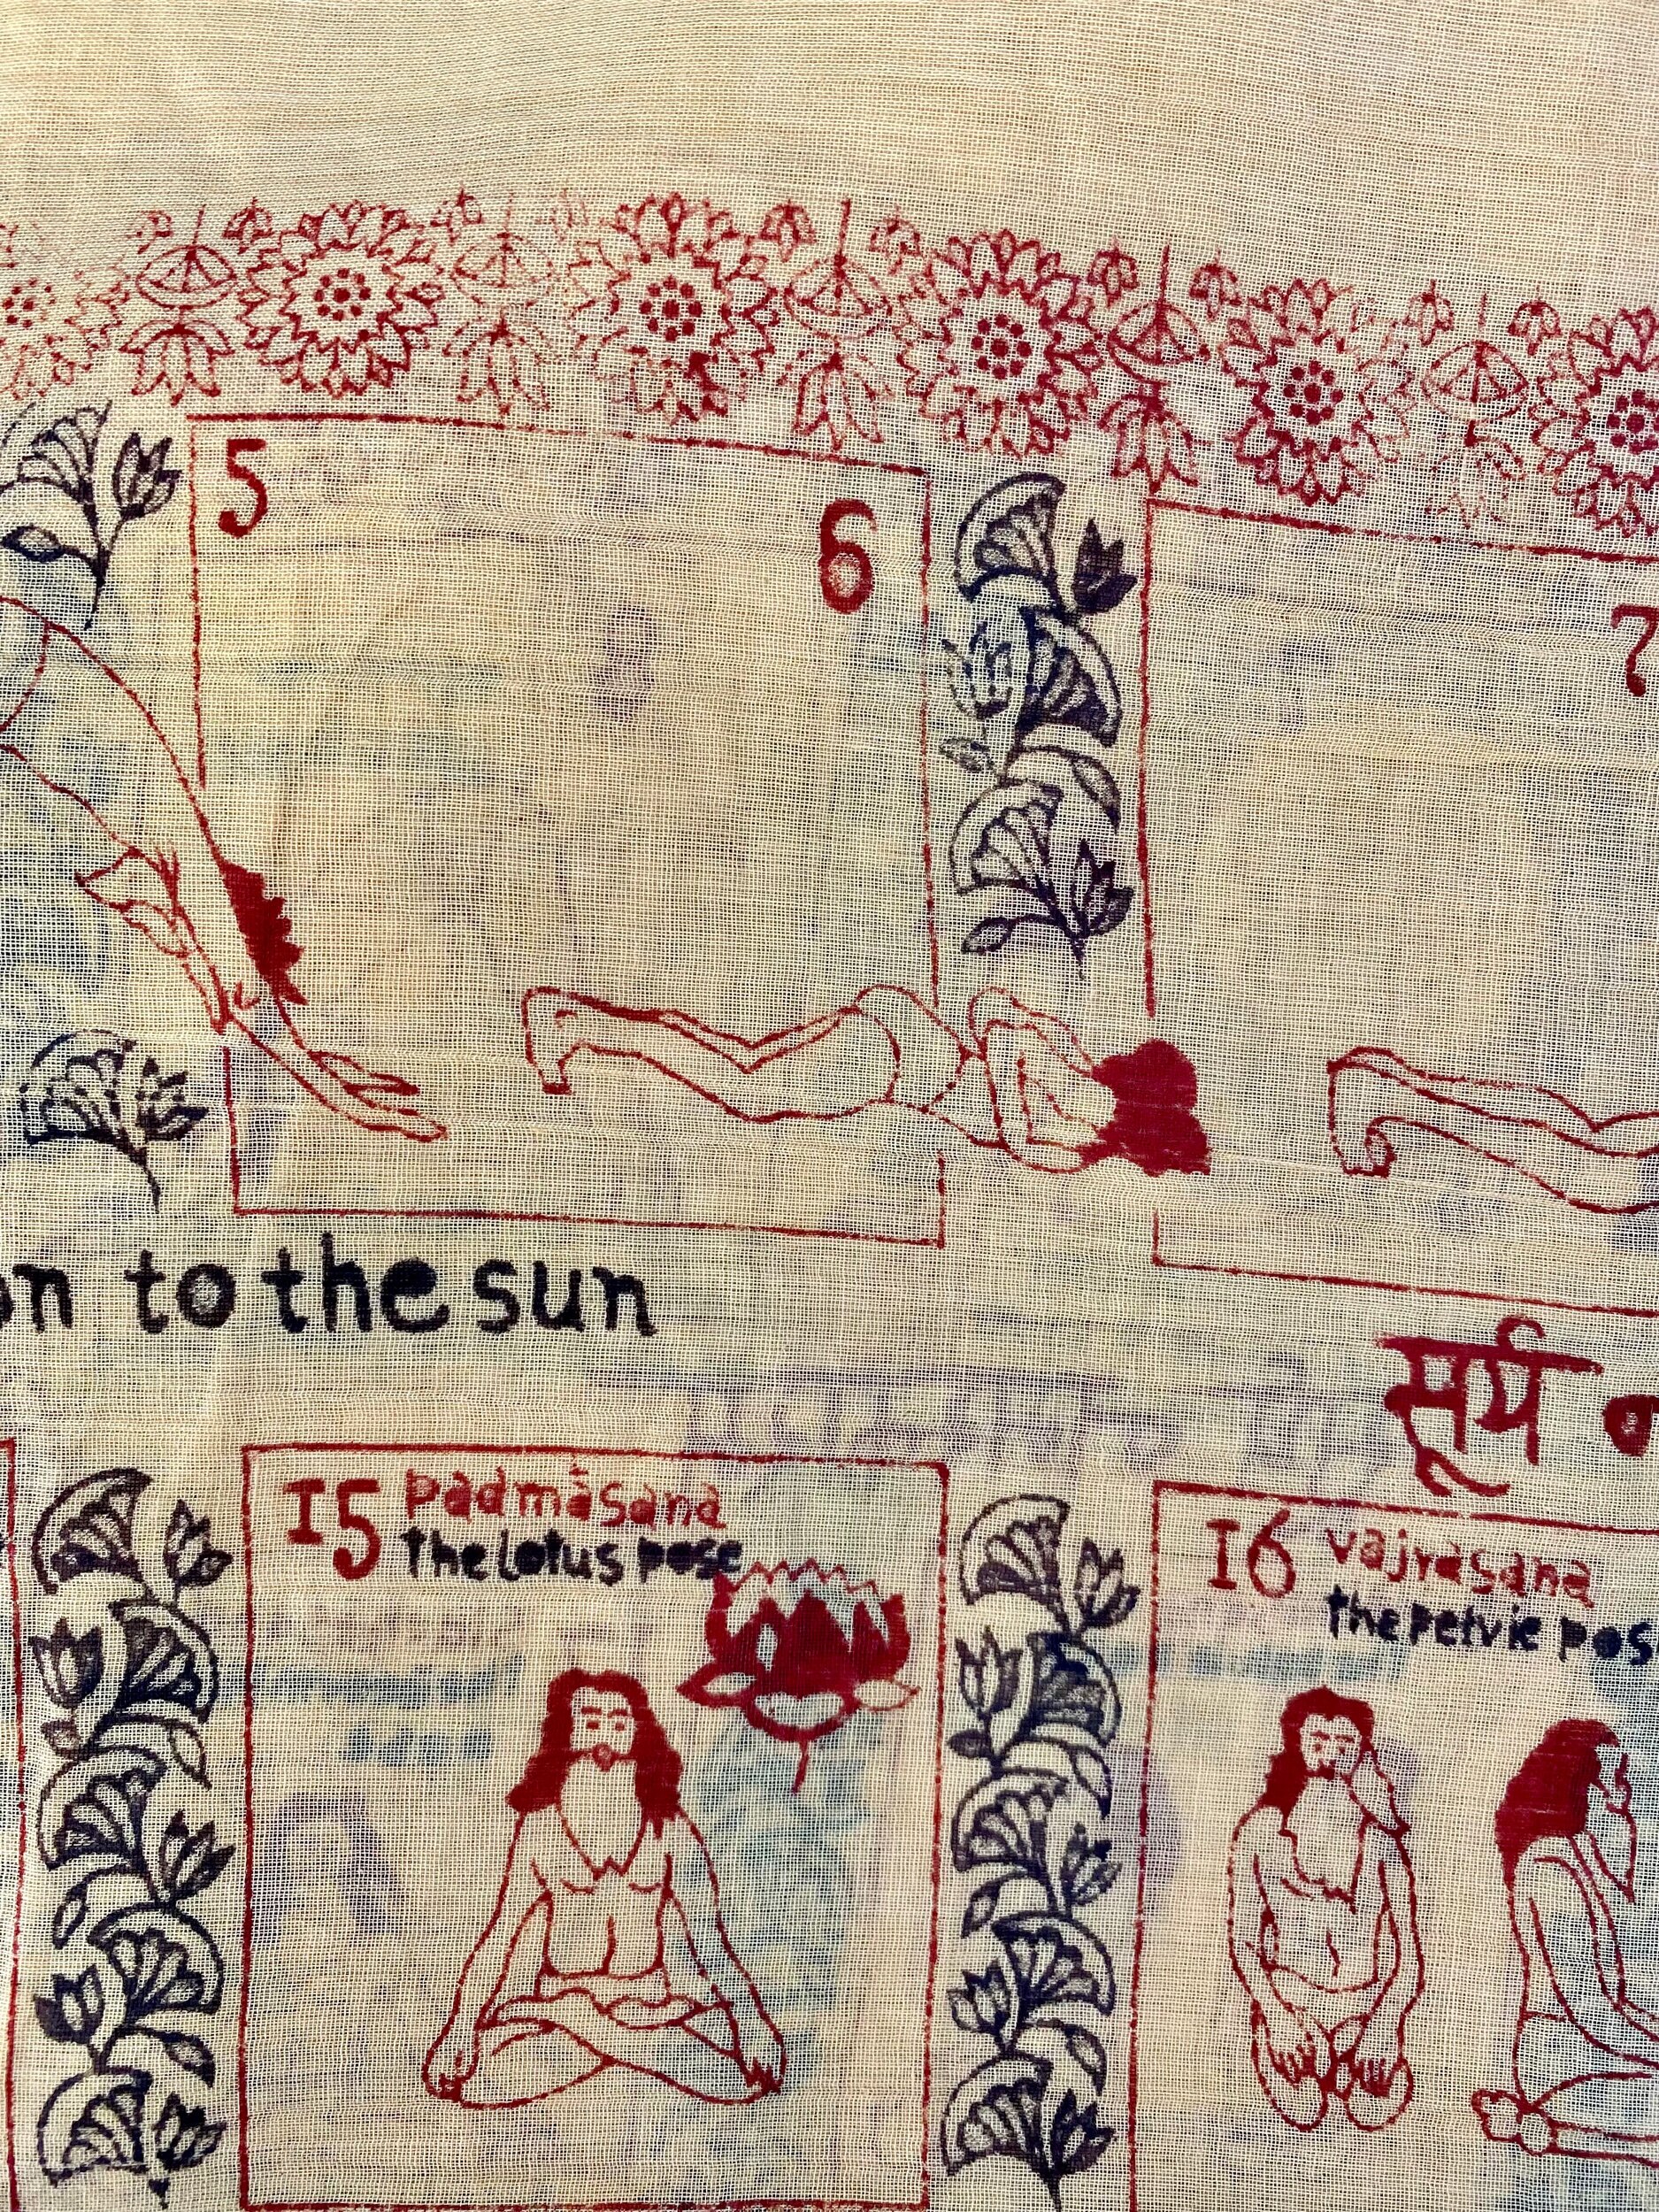 5
6
7
on to the sun
सूर्य
15 padmāsana
the lotus pose
16 vajrasana
the pelvic pos